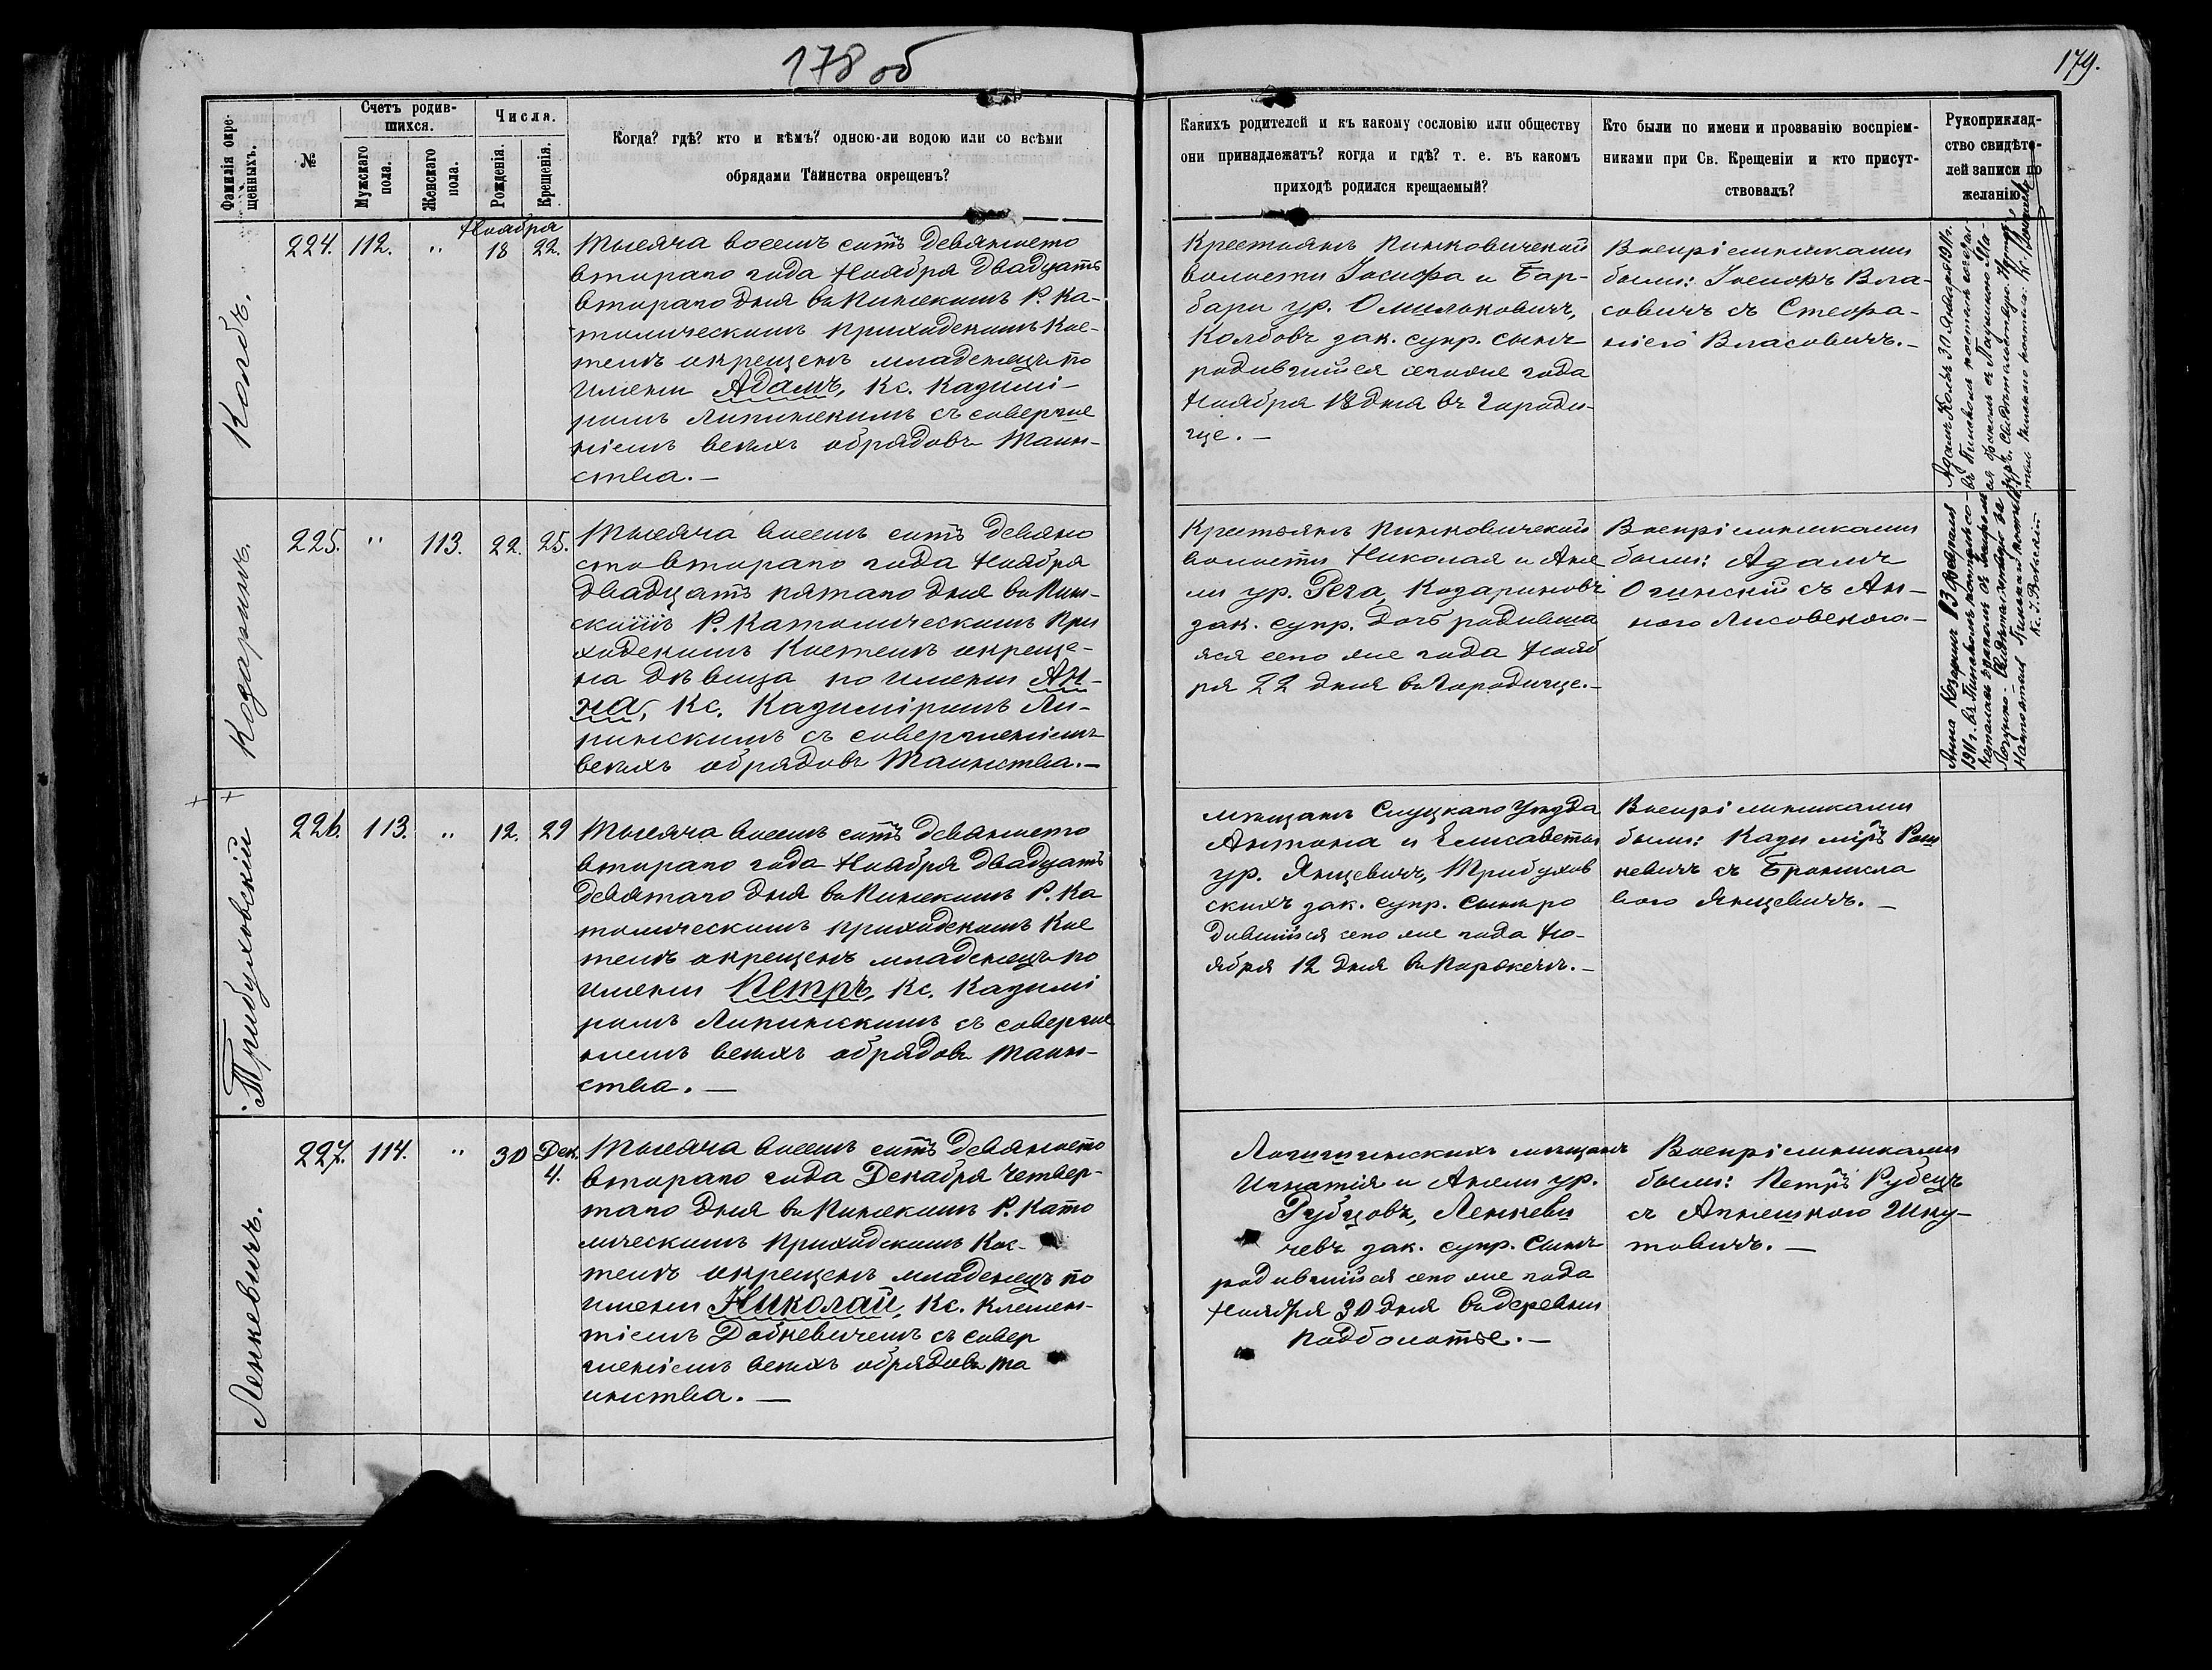 178 об
179.
Фамилія окрещенныхъ.
№
Счетъ родившихся.
Мужскаго пола.
Женскаго пола.
Числа.
Рожденія.
Крещенія.
Когда? гдѣ? кто и кѣмъ? одною-ли водою или со всѣми
обрядами Таинства окрещенъ?
Какихъ родителей и къ какому сословію или обществу
они принадлежатъ? когда и гдѣ? т. е. въ какомъ
приходѣ родился крещаемый?
Кто были по имени и прозванію воспріем-
никами при Св. Крещеніи и кто присут-
ствовалъ?
Рукоприклад-
ство свидѣте-
лей записи по
желанію.
Колбъ.
224. 112. „ Ноября 18 22.
Тысяча восемь сотъ девяносто
втораго года Ноября двадцать
втораго дня въ Пинскомъ Р. Ка-
толическомъ приходскомъ Кос-
телѣ окрещенъ младенецъ по
имени Адамъ, Кс. Казимі-
ромъ Липинскимъ съ соверше
ніемъ всѣхъ обрядовъ Таин-
ства. —
Крестьянъ Пинковичской
волости Іосифа и Вар-
вары ур. Омильковичъ,
Колбовъ зак. супр. сынъ
родившійся сего же года
Ноября 18 дня въ Городи-
ще. —
Воспріемниками
были: Іосифъ Вла-
совичъ съ Стефа-
ніею Власовичъ. —
Адамъ Колбъ 30 Января 1911 г.
въ Пинскомъ костелѣ
Козаринъ.
225. „ 113. 22. 25.
Тысяча восемь сотъ девяно
сто втораго года Ноября
двадцать пятаго дня въ Пин-
скомъ Р. Католическомъ При
ходскомъ Костелѣ окреще-
на дѣвица по имени Ан-
на, Кс. Казиміромъ Ли-
пинскимъ съ совершеніемъ
всѣхъ обрядовъ Таинства. —
Крестьянъ Пинковичской
волости Николая и Анге
ли ур. Рега, Козариновъ
зак. супр. дочь родивша
яся сего же года Нояб
ря 22 дня въ Городище. —
Воспріемниками
были: Адамъ
Огинскій съ Ан-
ною Лисовскою. —
Анна Козаринъ 13 Февраля
1911 г. въ Пинскомъ костелѣ
Трибуховскій
226. 113. „ 12. 29
Тысяча восемь сотъ девяносто
втораго года Ноября двадцать
девятаго дня въ Пинскомъ Р. Ка
толическомъ приходскомъ Кос
телѣ окрещенъ младенецъ по
имени Петръ, Кс. Казимі
ромъ Липинскимъ съ соверше
ніемъ всѣхъ обрядовъ Таин-
ства. —
Мѣщанъ Слуцкаго Уѣзда
Антона и Елисаветы
ур. Янцевичъ, Трибухов
скихъ зак. супр. сынъ ро
дившійся сего же года Но-
ября 12 дня въ
Воспріемниками
были: Казиміръ
невичъ съ Бронисла
вою Янцевичъ. —
Ленкевичъ.
227. 114. „ 30 Дек. 4.
Тысяча восемь сотъ девяносто
втораго года Декабря четвер-
таго дня въ Пинскомъ Р. Като
лическомъ Приходскомъ Кос-
телѣ окрещенъ младенецъ по
имени Николай, Кс. Клемен-
тіемъ Добкевичемъ съ совер
шеніемъ всѣхъ обрядовъ Та
инства. —
Логишинскихъ мѣщанъ
Игнатія и Анели ур.
Рубцовъ, Ленкеви
чевъ зак. супр. сынъ
родившійся сего же года
Ноября 30 дня въ деревни
Подболотье. —
Воспріемниками
были: Петръ Рубецъ
съ Агнешкою Шку-
товичъ. —